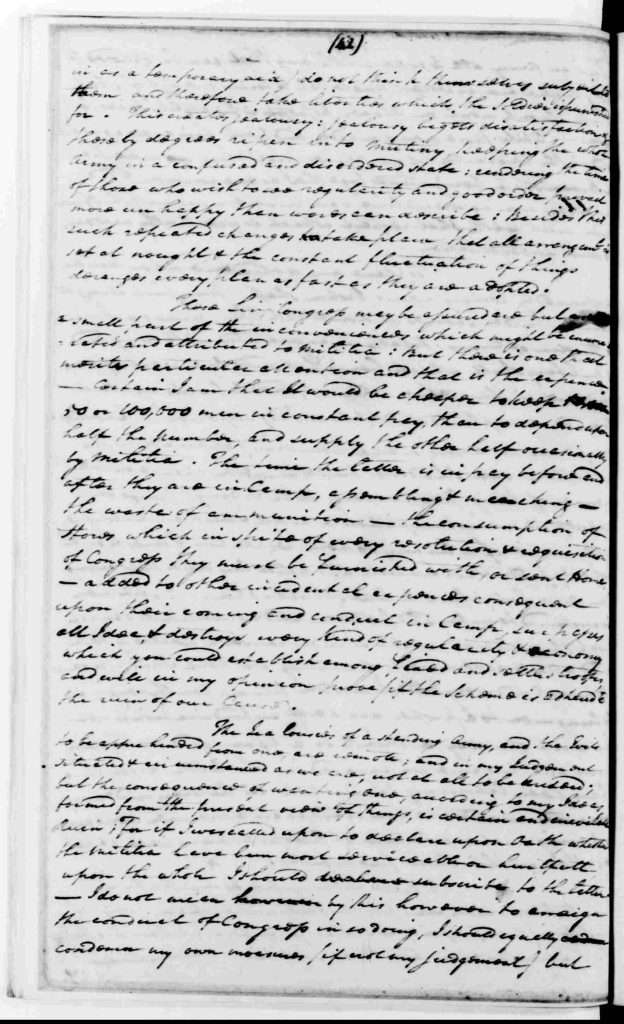 (12)
in as a temporary aid) do not think themselves subject to
them and therefore take liberties which the Soldier is punished
for. This creates jealousy: jealousy begets dissatisfaction &
these by degrees ripen into mutiny keeping the whole
Army in a confused and disordered state; rendering the time
of those who wish to see regularity and good order prevail
more unhappy than words can describe: Besides this
such repeated changes take place, that all arrangemt is
set at nought & the constant fluctuation of things
deranges every plan as fast as they are adopted.
These Sir Congress may be assured are but a
small part of the inconveniences which might be enume-
rated and attributed to Militia: But there is one that
merits particular attention and that is the expence
- Certain I am that it would be cheaper to keep
50 or 100,000 men in constant pay, than to depend upon
half the number, and supply the other half occasionally
by Militia. The time the latter is in pay before and
after they are in Camp, assembling & marching -
the waste of ammunition - the consumption of
Stores which in spite of every resolution & requisition
of Congress they must be furnished with, or sent Home
- added to other incidental expences consequent
upon their coming and conduct in Camp, surpasses
all Idea, & destroys every kind of regularity & economy
which you could establish among fixed and settled troops
and will in my opinion prove (if the Scheme is adhered to
the ruin of our Cause.
The Jealousies of a standing Army, and the Evils
to be apprehended from one, are remote; and in my Judgement
situated & circumstanced as we are, not at all to be dreaded;
but the consequence of wanting one, according to my Ideas,
formed from the present view of things, is certain and inevitable
Ruin; For if I was called upon to declare upon Oath whether
the Militia have been most serviceable or hurtfull
upon the whole I should subscribe to the latter
- I do not mean by this however to arraign
the conduct of Congress in so doing, I should equally
condemn my own measures (if not my judgement) but